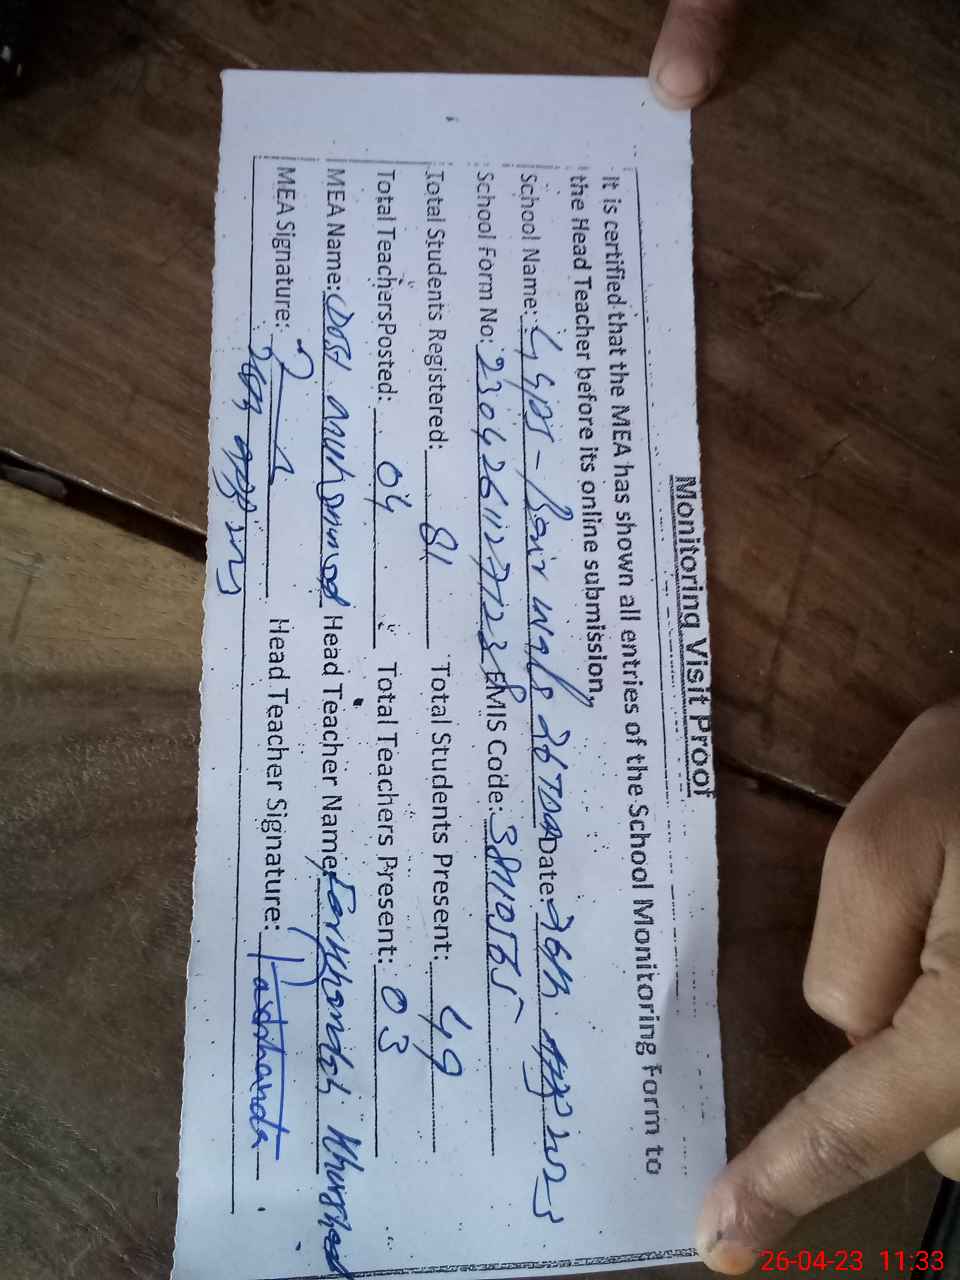 Monitoring Visit Proof
It is certified that the MEA has shown all entries of the School Monitoring Form to
the Head Teacher before its online submission,
School Name: GGPS - 26TDA Date: 26th 2023
School Form No: EMIS Code: 38110565
Total Students Registered: 81 Total Students Present: 49
Total Teachers Posted: 04 Total Teachers Present: 03
MEA Name: Dost Muhammad Head Teacher Name: Farkhandah Khurshed
MEA Signature: Head Teacher Signature: Farkhanda
26-04-23 11:33